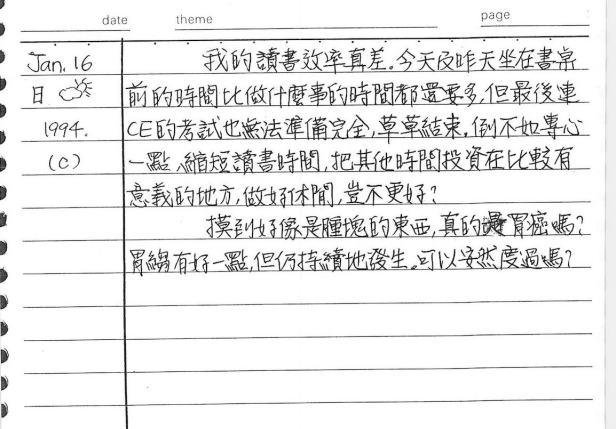 date theme page
Jan. 16 我的讀書效率真差。今天及昨天坐在書桌
日 前的時間比做什麼事的時間都還要多,但最後連
1994. CE的考試也無法準備完全,草草結束。倒不如專心
(C) 一點、縮短讀書時間,把其他時間投資在比較有
意義的地方,做好休閒,豈不更好?
摸到好像是腫塊的東西,真的是胃癌嗎?
胃縐有好一點,但仍持續地發生。可以安然度過嗎?